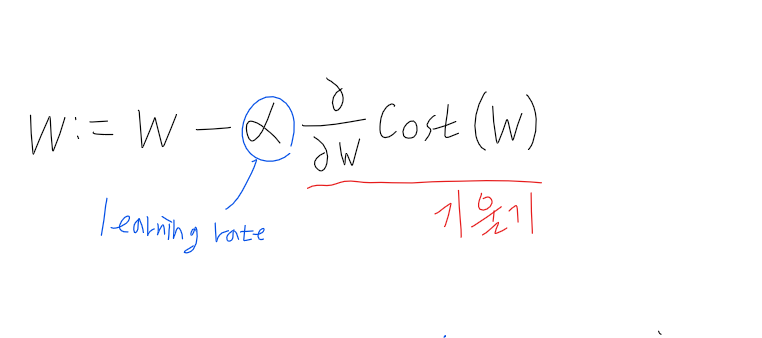 W := W - α ∂/∂W Cost(W)
learning rate
기울기